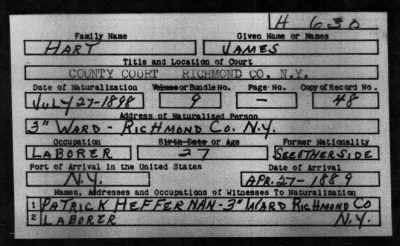 H 630
Family Name Given Name or Names
HART JAMES
Title and Location of Court
COUNTY COURT RICHMOND CO. N.Y.
Date of Naturalization Volume or Bundle No. Page No. Copy of Record No.
JULY 27-1898 9 — 48
Address of Naturalized Person
3" WARD - RICHMOND CO. N.Y.
Occupation Birth Date or Age Former Nationality
LABORER 27 SEE OTHER SIDE
Port of Arrival in the United States Date of Arrival
N.Y. APR. 27-1889
Names, Addresses and Occupations of Witnesses To Naturalization
1 PATRICK HEFFERNAN-3" WARD RICHMOND CO
2 LABORER N.Y.